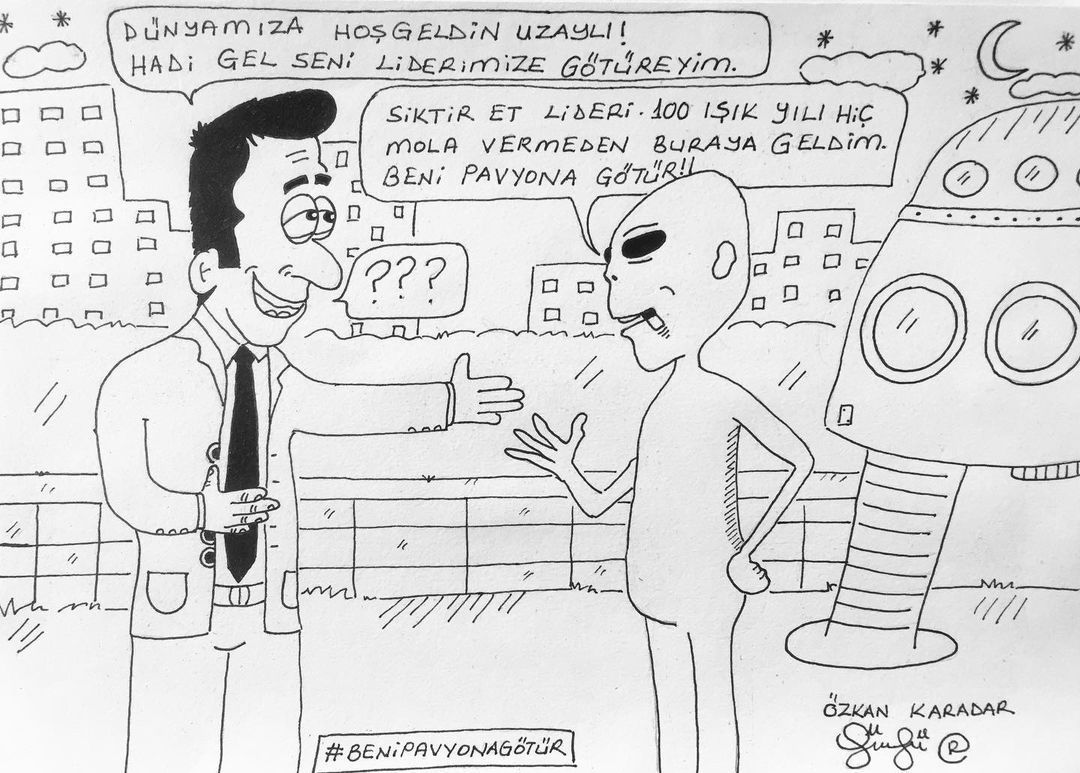 DÜNYAMIZA HOŞGELDİN UZAYLI!
HADİ GEL SENİ LİDERİMİZE GÖTÜREYİM.
SİKTİR ET LİDERİ. 100 IŞIK YILI HİÇ
MOLA VERMEDEN BURAYA GELDİM.
BENİ PAVYONA GÖTÜR!!
???
ÖZKAN KARADAR
#BENİPAVYONAGÖTÜR